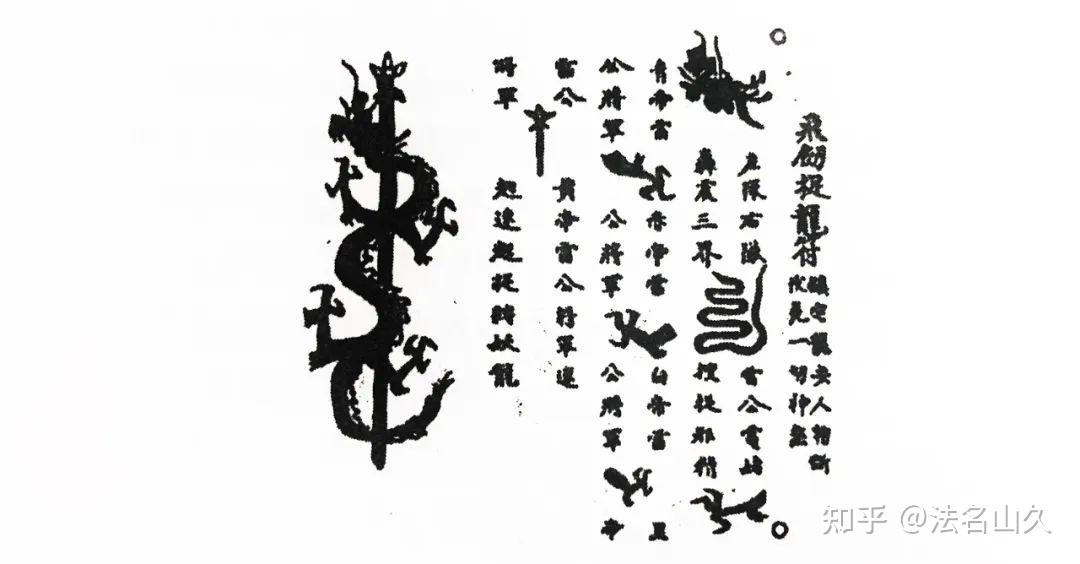 飛釼捉龍符
鎮宅龍安人物斷
伏屍一切神煞
左隊右隊
轟震三界
雷公電母
搜捉邪精
青帝雷
公將軍
赤帝雷
公將軍
白帝雷
公將軍
黑
帝
雷公
將軍
黃帝雷公將軍速
起速起捉縛妖龍
知乎 @法名山久